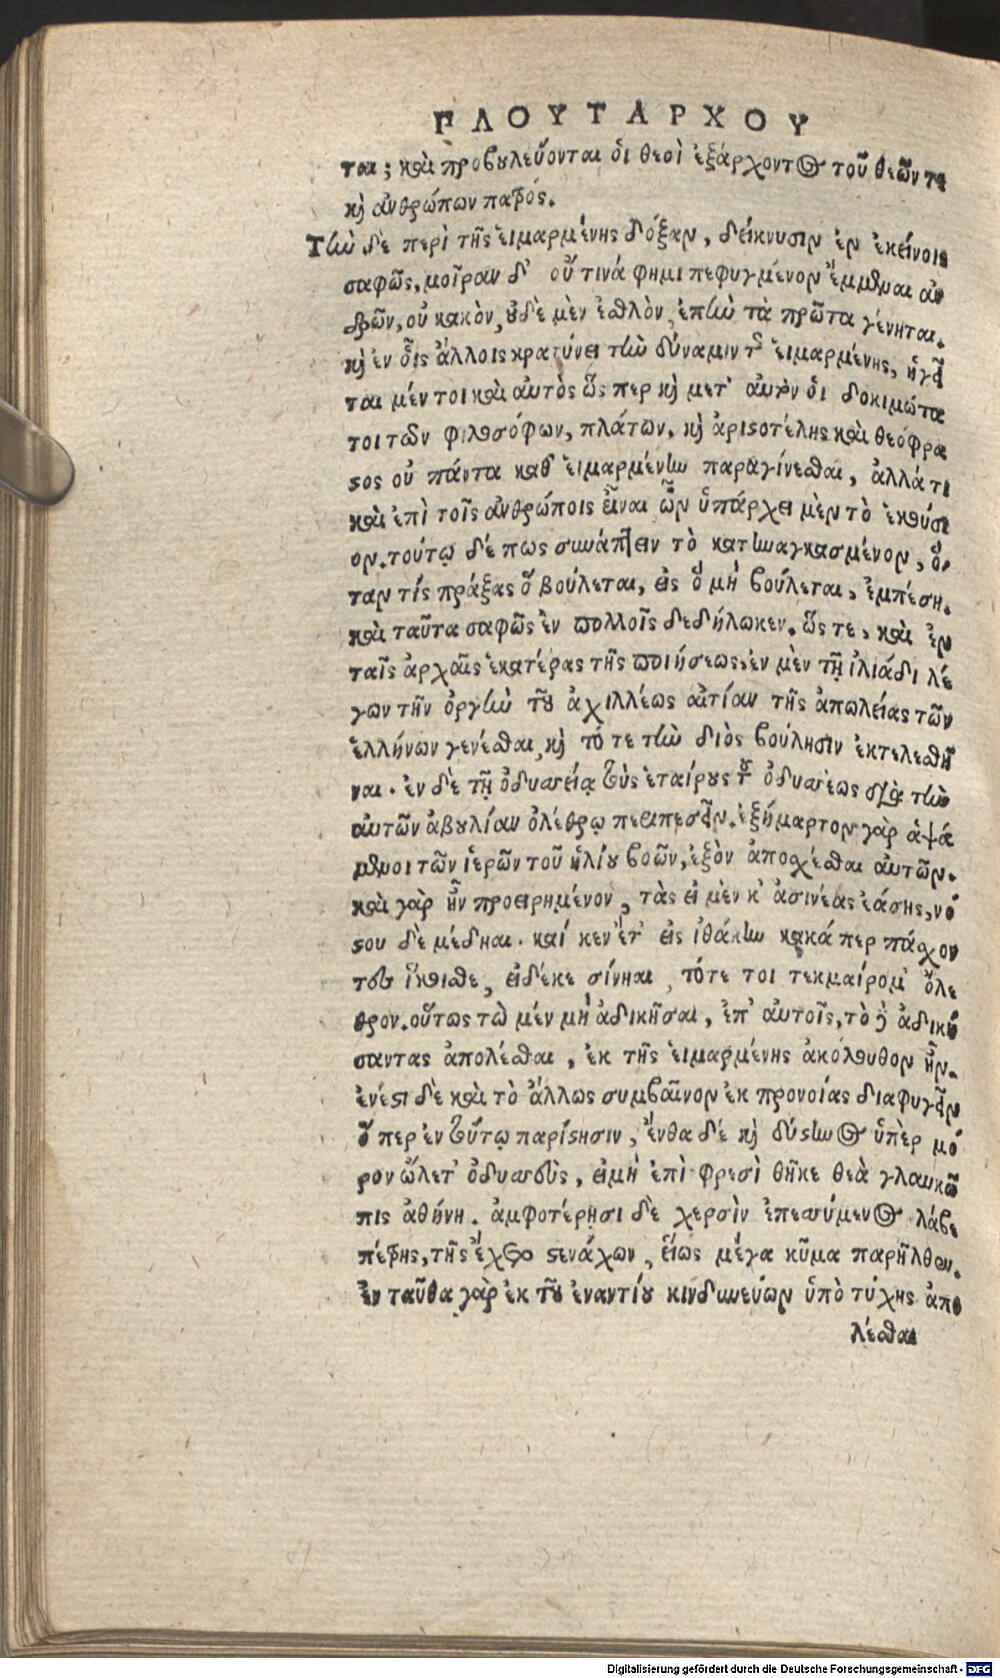 ΠΛΟΥΤΑΡΧΟΥ
ται; καὶ προβουλεύονται ὁι θεοὶ ἐξάρχοντος τοῦ θεῶν τε
καὶ ἀνθρώπων πατρός.
Τὴν δὲ περὶ τῆς ἑιμαρμένης δόξαν, δείκνυσιν ἐν ἐκείνοις
σαφῶς, μοῖραν δ' οὔ τινά φημι πεφυγμένον ἔμμεναι ἀν
δρῶν, οὐ κακὸν, οὐδὲ μὲν ἐσθλὸν, ἐπὴν τὰ πρῶτα γένηται.
καὶ ἐν οἷς ἄλλοις κρατύνει τὴν δύναμιν τῆς ἑιμαρμένης, ἡγεῖ
ται μέν τοι καὶ αὐτὸς ὥς περ καὶ μετ' αὐτὸν ὁι δοκιμώτα
τοι τῶν φιλοσόφων, πλάτων, καὶ ἀριστοτέλης καὶ θεόφρα
στος οὐ πάντα καθ' ἑιμαρμένην παραγίνεσθαι, ἀλλά τι
καὶ ἐπὶ τοῖς ἀνθρώποις εἶναι ὧν ὑπάρχει μὲν τὸ ἑκούσι
ον. τούτῳ δέ πως συνάπτειν τὸ κατηναγκασμένον, ὅ,
ταν τίς πράξας ὃ βούλεται, εἰς ὃ μὴ βούλεται, ἐμπέσῃ.
καὶ ταῦτα σαφῶς ἐν πολλοῖς δεδήλωκεν. ὥς τε, καὶ ἐν
ταῖς ἀρχαῖς ἑκατέρας τῆς ποιήσεως, ἐν μὲν τῇ ἰλιάδι λέ
γων τὴν ὀργὴν τοῦ ἀχιλλέως αἰτίαν τῆς ἀπωλείας τῶν
ἑλλήνων γενέσθαι, καὶ τό τε τὴν διὸς βούλησιν ἐκτελεσθῆ
ναι. ἐν δὲ τῇ ὀδυσσείᾳ τοὺς ἑταίρους τοῦ ὀδυσσέως διὰ τὴν
αὐτῶν ἀβουλίαν ὀλέθρῳ περιπεσεῖν. ἐξήμαρτον γὰρ ἁψά
μενοι τῶν ἱερῶν τοῦ ἡλίου βοῶν, ἐξὸν ἀποσχέσθαι αὐτῶν.
καὶ γὰρ ἦν προειρημένον, τὰς εἰ μὲν κ' ἀσινέας ἐάσῃς, νό
στου δὲ μέδηαι. καί κεν ἔτ' εἰς ἰθάκην κακά περ πάσχον
τες ἵκοισθε, εἰ δέ κε σίνηαι, τότε τοι τεκμαίρομ' ὄλε
θρον. οὕτως τὸ μέν μὴ ἀδικῆσαι, ἐπ' αὐτοῖς, τὸ δὲ ἀδική
σαντας ἀπολέσθαι, ἐκ τῆς ἑιμαρμένης ἀκόλουθον ἦν.
ἐνέστι δὲ καὶ τὸ ἄλλως συμβαῖνον ἐκ προνοίας διαφυγεῖν
ὅ περ ἐν τούτῳ παρίστησιν, ἔνθα δέ κὴ δύστηνος ὑπὲρ μό
ρον ὤλετ' ὀδυσσεὺς, εἰ μὴ ἐπὶ φρεσὶ θῆκε θεὰ γλαυκῶ
πις ἀθήνη. ἀμφοτέρῃσι δὲ χερσὶν ἐπεσσύμενος λάβε
πέτρης, τῆς ἔχετο στενάχων, εἵως μέγα κῦμα παρῆλθεν.
ἐν ταῦθα γὰρ ἐκ τοῦ ἐναντίου κινδυνεύων ὑπὸ τύχης ἀπο
λέσθαι
Digitalisierung gefördert durch die Deutsche Forschungsgemeinschaft - DFG